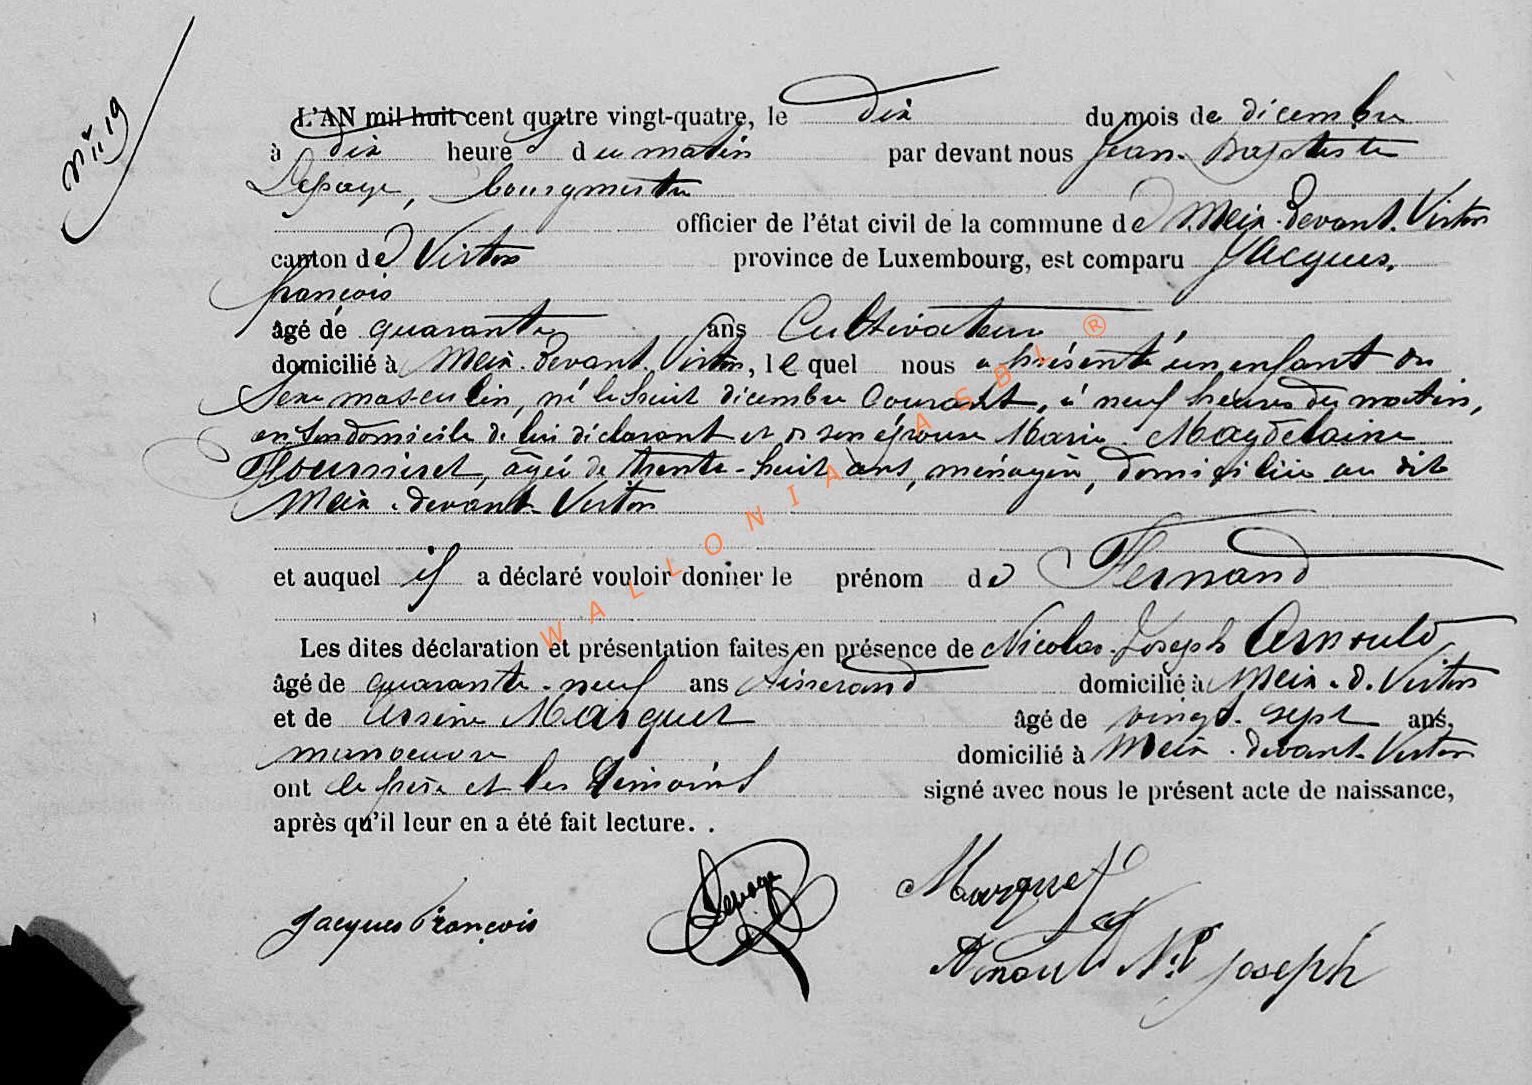 N° 119
L'AN mil huit cent quatre vingt-quatre, le dix du mois de décembre
à dix heures du matin par devant nous Jean-Baptiste
Lepage, bourgmestre
officier de l'état civil de la commune de Meix-devant-Virton
canton de Virton province de Luxembourg, est comparu Jacques,
françois
âgé de quarante ans Cultivateur
domicilié à Meix-devant-Virton, lequel nous a présenté un enfant du
Sexe masculin, né le huit décembre Courant, à neuf heures du matin,
en son domicile de lui déclarant et de son épouse Marie-Magdelaine
Fourniret, âgée de trente-huit ans, ménagère, domiciliée au dit
Meix-devant-Virton
et auquel il a déclaré vouloir donner le prénom de Fernand
Les dites déclaration et présentation faites en présence de Nicolas-Joseph Arnould
âgé de quarante-neuf ans tisserand domicilié à Meix-d.-Virton
et de Marquet âgé de vingt-sept ans,
manoeuvre domicilié à Meix-devant-Virton
ont le père et les témoins signé avec nous le présent acte de naissance,
après qu'il leur en a été fait lecture. .
Jacques François
Lepage
Marquet
Arnould Nas Joseph
WALLONIA ASBL ®